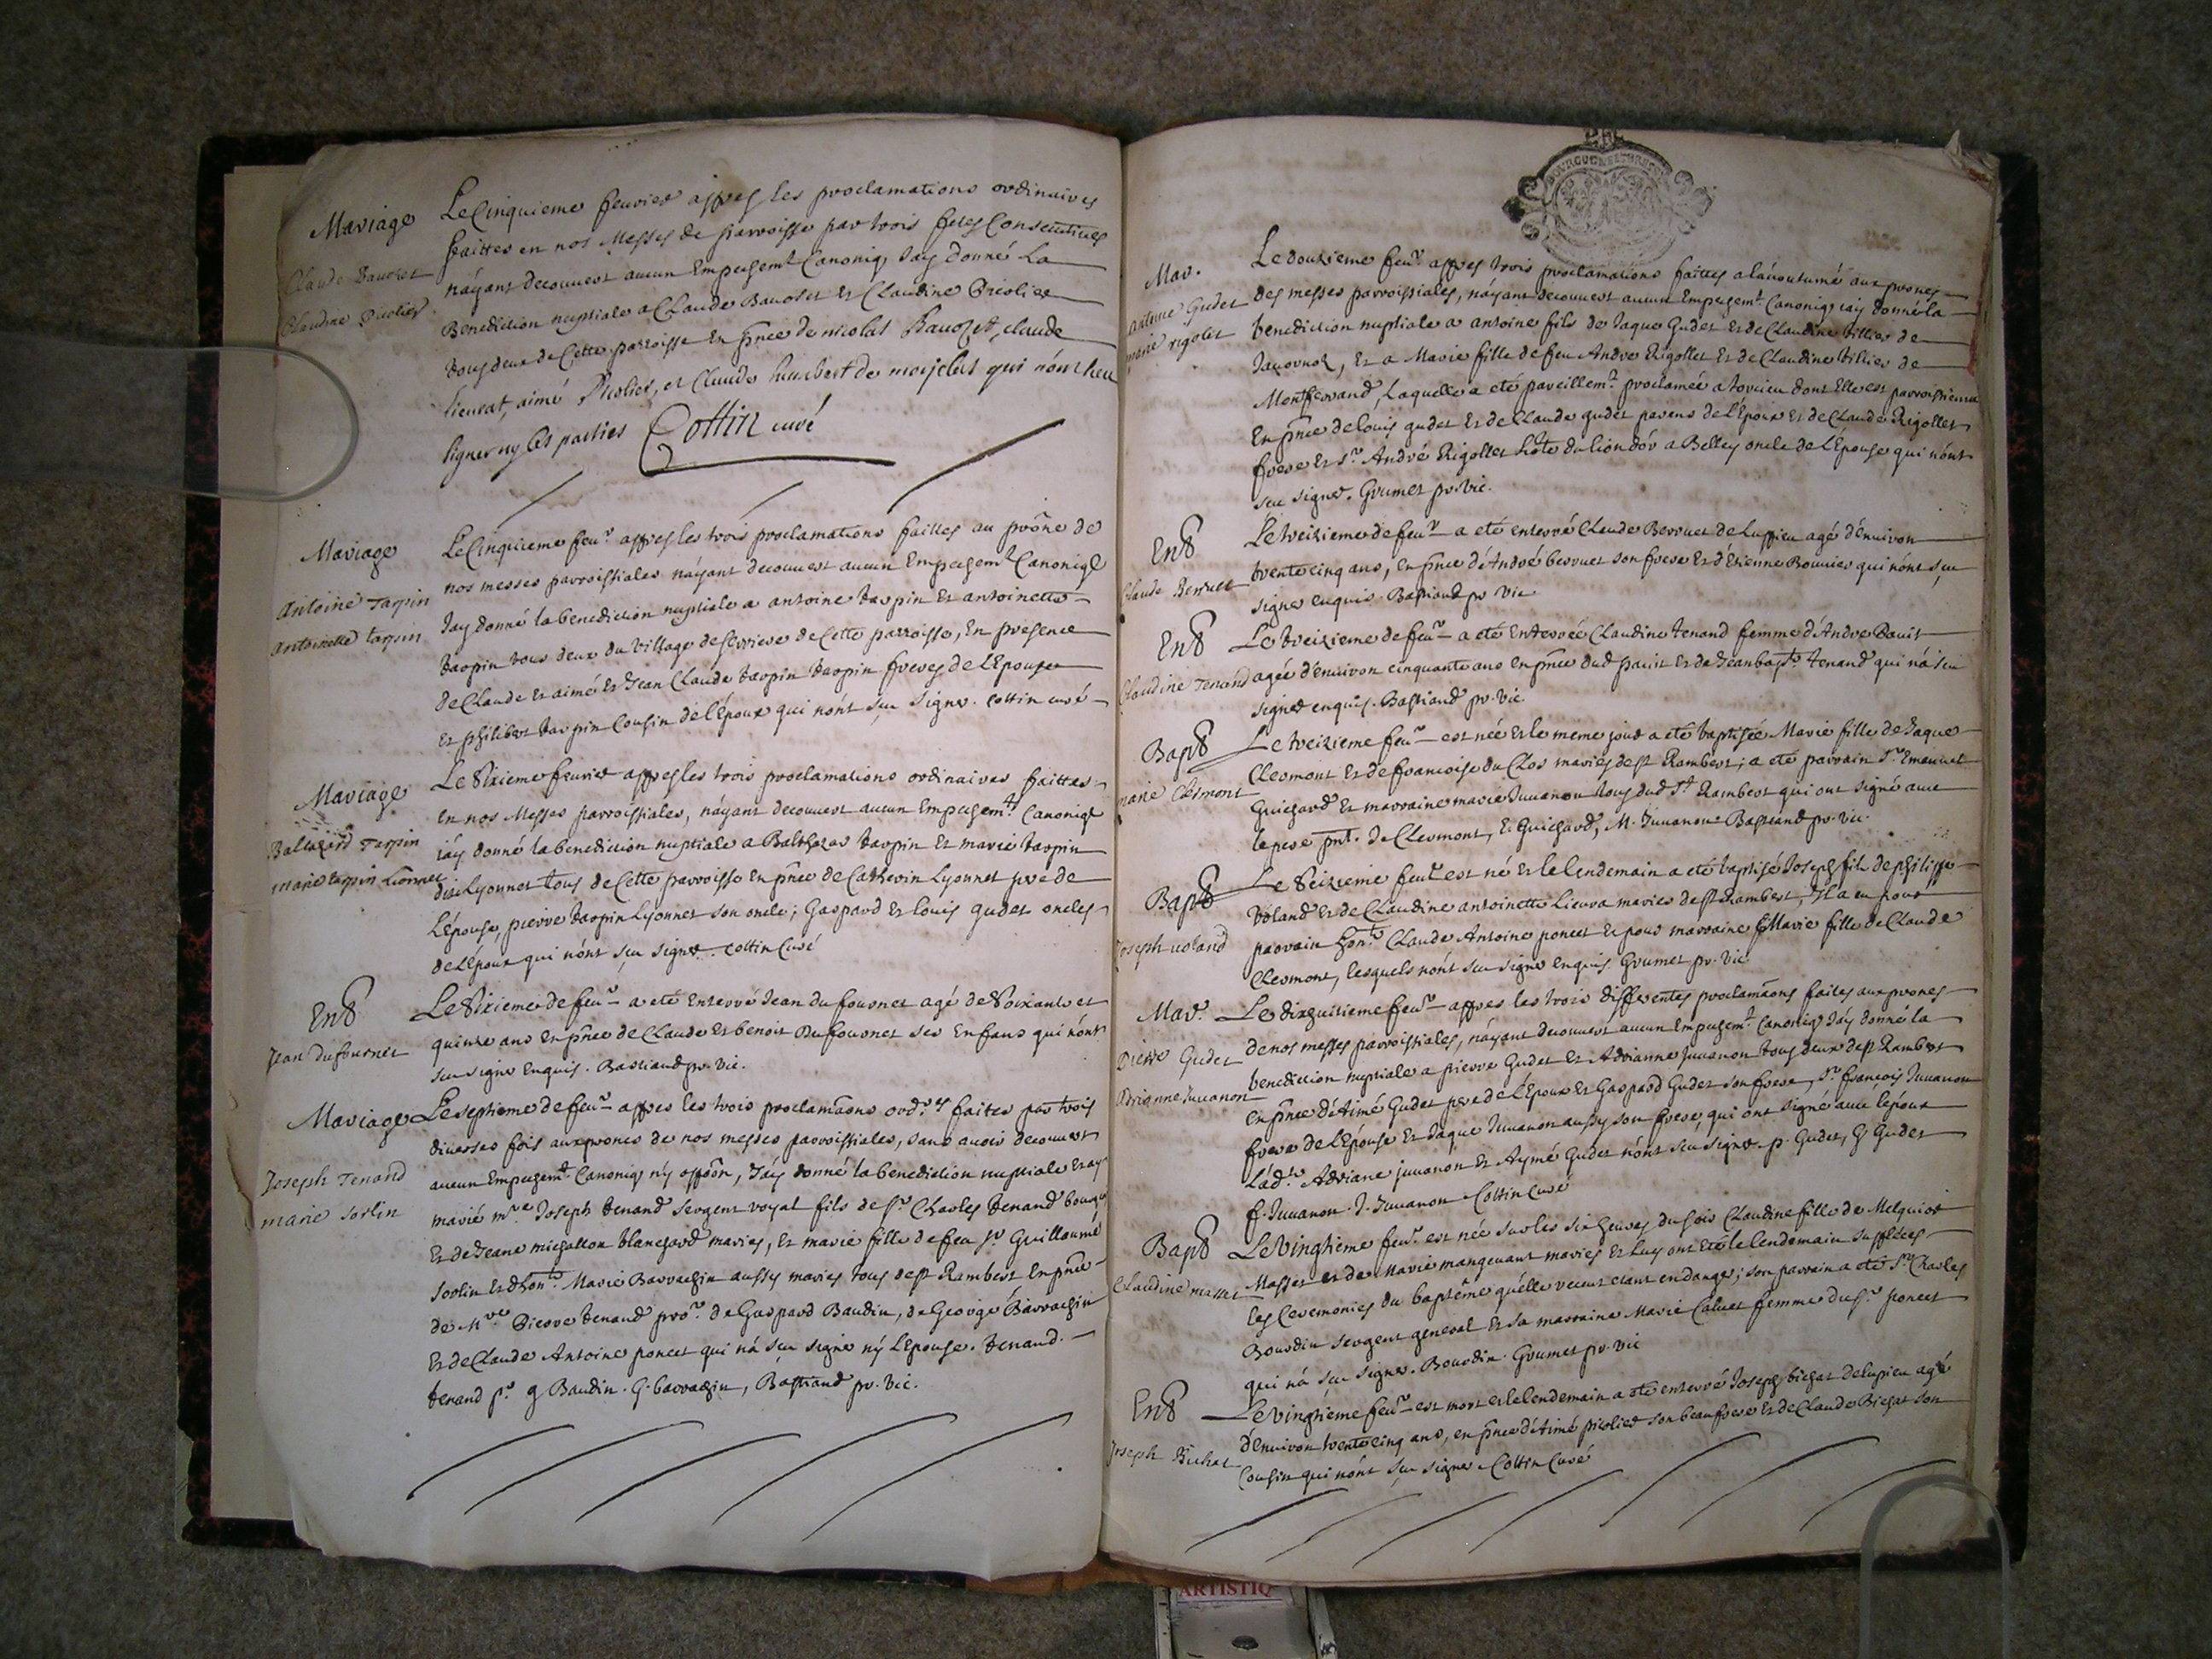 Mariage
Claude Bauozet
Claudine Picolier
Le Cinquieme feurier appres les proclamations ordinaires
faittes en nos Messes de parroisse par trois fetes Consecutiues
n'áyant decouuert aucun Empechemt. Canoniq. Jay donné La
Benediction nuptiale a Claude Bauozet Et Claudine Picolier
tous deux de Cette parroisse En pnce de nicolas Bauozet, claude
lieurat, aimé Picolier, et Claude humbert de qui nónt sceu
signer ny les parties Cottin curé
Mariage
Antoine Tarpin
Antoinette tarpin
Le Cinquieme feur. appres les trois proclamations faittes au prône de
nos messes parroissiales náyant decouuert aucun Empechemt. Canoniqe
Jay donné la benediction nuptiale a antoine tarpin Et antoinette
tarpin tous deux du village de serriere de Cette parroisse, En presence
de Claude Et aimé Et Jean Claude tarpin tarpin freres de l'Epouse
Et philibert tarpin Cousin de l'époux qui nónt sçu signer. cottin curé
Mariage
Baltazard Tarpin
marie tarpin Lionnet
Le Sixieme feurier appres les trois proclamations ordinaires faittes
En nos Messes parroissiales, náyant decouuert aucun Empechemt. Canoniqe
iáy donné la benediction nuptiale a Balthazar tarpin Et marie tarpin
dit Lyonnet tous de Cette parroisse En pnce de Catherin Lyonnet pere de
l'Epouse, pierre tarpin Lyonnet son oncle; Gaspard Et louis gudet oncles
de l'Epoux qui nónt sçu signer. cottin Curé
Ent
Jean Dufournet
Le Sixieme de feur. a eté Enterré Jean du fournet agé de Soixante et
quinze ans En pnce de Claude Et benoit Dufournet ses Enfans qui nónt
sçu signer Enquis. Bastiand pr. vic.
Mariage
Joseph Tenand
marie sorlin
Le septieme de feur. appres les trois proclamaons ordres faites par trois
diuerses fois aux prones de nos messes parroissiales, sans auoir decouuert
aucun Empechemt. Canoniq. ny oppoôn, J'áy donné la benediction nuptiale Et ay
marié mre. Joseph tenand sergent royal fils de Sr. Charles tenand bourgs
Et de Jeane michallon blanchard mariés, Et marie fille de feu Sr Guillaume
sorlin Et d'honte. Marie Barrachin aussy mariés tous de St Rambert En pnce
de Mre. Pierre tenand pror. de Gaspard Baudin, de George Barrachin
Et de Claude Antoine poncet qui ná sçu signer ny l'Epouse. tenand.
tenand pr. g Baudin. G. barrachin, Bastiand pr. vic.
Mar.
antoine Gudet
marie rigolet
Le douzieme feur. appres trois proclamations faittes a láccoutumé aux prones
des messes parroissiales, náyant decouuert aucun Empechemt. Canoniq. iáy donné la
benediction nuptiale a antoine fils de Jaque Gudet Et de Claudine tillier de
Jauornoz, Et a Marie fille de feu Andre Rigollet Et de Claudine tillier de
Montferrand, Laquelle a eté pareillemt. proclamée a torcieu dont Elle est parroissienne
En pnce de louis gudet Et de Claude gudet parens de l'Epoux Et de Claude Rigollet
frere Et Sr. André Rigollet hote du lion dór a Belley oncle de l'Epouse qui nónt
sçu signer. Grumet pr. vic.
Ent
Claude Berruet
Le treizieme de feur. a eté enterré Claude Berruet de Luppieu agé d'enuiron
trente cinq ans, En pnce d'André berruet son frere Et d'Etienne Bouuier qui nónt sçu
signer enquis. Bastiand pr vic
Ent
Claudine Tenand
Le treizieme de feur. a eté Enterrée Claudine tenand femme d'Andre Dauit
agée d'enuiron cinquante ans en pnce dud Dauit Et de Jean bapte. tenand qui ná sçu
signer enquis. Bastiand pr. vic.
Bapt
marie Clermont
Le treizieme feur. est née Et le meme jour a eté baptisée Marie fille de Jaque
Clermont Et de francoise du Clos mariés de St Rambert; a eté parrain Sr. Emanuel
Guichard Et marraine marie Juuanon tous dud St. Rambert qui ont signé auec
le pere pnt. de Clermont, E. Guichard, M. Juuanon Bastiand pr. vic.
Bapt
Joseph uoland
Le Seizieme feur. est né Et le lendemain a eté baptisé Joseph fils de philippe
Voland Et de Claudine antoinette Lieura mariés de St Rambert, Il a eu pour
parrain honte. Claude Antoine poncet Et pour marraine Marie fille de Claude
Clermont, lesquels nónt sçu signer Enquis. Grumet pr. vic
Mar.
Pierre Gudet
Adrianne Juuanon
Le dixhuitieme feur. appres les trois differentes proclamaons faites aux prones
de nos messes parroissiales, náyant decouuert aucun Empechemt. Canoniq. Jáy donné la
benediction nuptiale a pierre Gudet Et Adrianne Juuanon tous deux de St Rambert
en pnce d'Aimé Gudet pere de l'Epoux Et Gaspard Gudet son frere, Sr. francois Juuanon
frere de l'Epouse Et Jaque Juuanon aussy son frere, qui ont signé auec lépoux
Lad.te Adriane juuanon Et Aymé Gudet nónt sçu signer. p. Gudet, G Gudet
f. Juuanon. J. Juuanon Cottin Curé
Bapt
Claudine masset
Le Vingtieme feur. est née sur les six heures du soir Claudine fille de Melquiot
Masset et de Marie mangeuant mariés Et luy ont Eté le lendemain suppleées
les Ceremonies du baptême quelle receut etant en danger; son parrain a eté Sr. Charles
Bourdin sergent general Et sa marraine Marie Caluet femme du Sr. poncet
qui ná sçu signer. Bourdin. Grumet pr. vic
Ent
Joseph Bichat
Le Vingtieme feur. est mort et le lendemain a eté enterré Joseph bichat de lupieu agé
d'Enuiron trente cinq ans, en pnce d'Aimé picolier son beaufrere Et de Claude Bichat son
Cousin qui nónt sçu signer Cottin Curé
ARTISTIQ